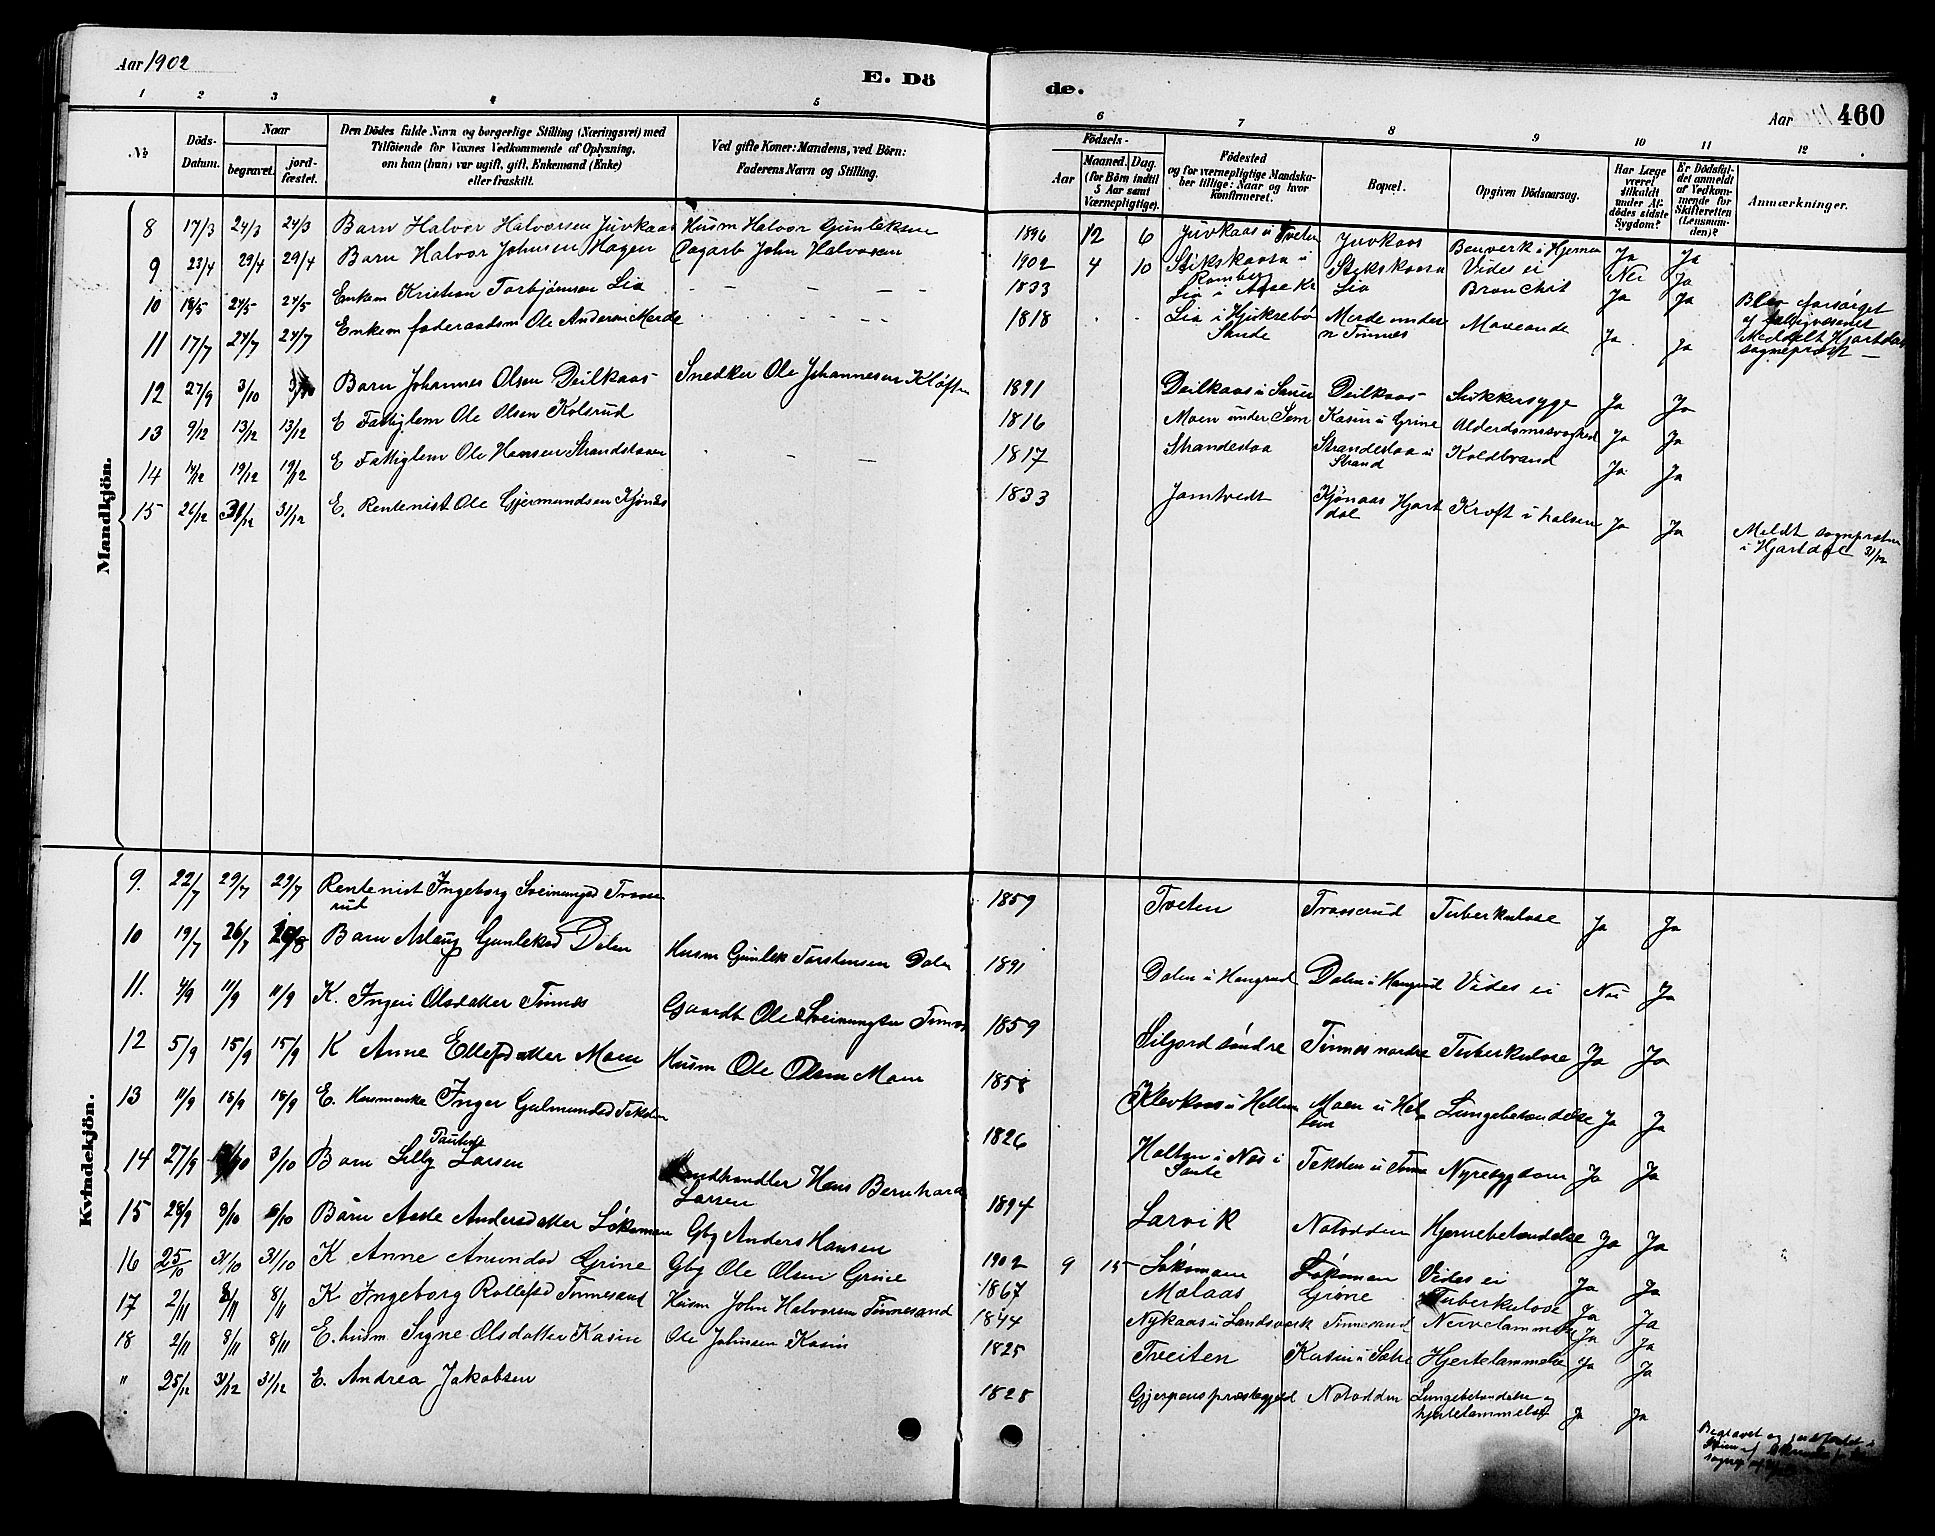 Aar 1902
E. Dö
de.
Aar 460
1 2 3 4 5 6 7 8 9 10 11 12
№
Döds-Datum.
Naar
begravet.
jord-fæstet.
Den Dödes fulde Navn og borgerlige Stilling (Næringsvei) med
Tilföiende for Voxnes Vedkommende af Oplysning,
om han (hun) var ugift, gift, Enkemand (Enke)
eller fraskilt.
Ved gifte Koner: Mandens, ved Börn:
Faderens Navn og Stilling.
Födsels-
Aar
Maaned. Dag.
(for Börn indtil
5 Aar samt
Værnepligtige).
Födested
og for værnepligtige Mandska-
ber tillige: Naar og hvor
konfirmeret.
Bopæl.
Opgiven Dödsaarsag.
Har Læge
været
tilkaldt
under Af-
dödes sidste
Sygdom?
Er Dödsfal-
det anmeldt
af Vedkom-
mende for
Skifteretten
(Lensman-
den)?
Anmærkninger.
Mandkjön.
8 17/3 24/3 24/3 Barn Halvor Halvorsen Juvkaas Husm Halvor Gunleksen 1896 12 6 Juvkaas u Tveten Juvkaas Benverk i Hjernen Ja Ja
9 23/4 29/4 29/4 Barn Halvor Johnsen Hagen Dagarb John Halvorsen 1902 4 10 Stikskaasa u Romberg Stikskaasa Vides ei Nei Ja
10 18/5 24/5 24/5 Enkem Kristian Torbjørnsen Lia 1833 Lia Bronchit Ja Ja Blev forsørget af fattigvæsenet
11 17/7 24/7 24/7 Enkem føderaadsm Ole Andersen Merde 1818 Lia i Hjuksebø Sande Merde under n Tinnes Mavesaar Ja Ja Meddelt Hjartdal sogneprest
12 27/9 3/10 Barn Johannes Olsen Deilkaas Snedker Ole Johannesen Kløften 1891 Deilkaas u Sauer Deilkaas Sukkersyge Ja Ja
13 9/12 13/12 13/12 E Fattiglem Ole Olsen Kolsrud 1816 Moen under Sem Kasin u Grine Alderdomssvaghed Ja Ja
14 14/12 19/12 19/12 E Fattiglem Ole Hansen Strandstaaen 1817 Strandestaa Strandestaa u Strand Koldbrand Ja Ja
15 26/12 31/12 31/12 E. Rentenist Ole Gjermundsen Kjønås 1833 Jamtvedt Kjønaas Hjartdal Kræft i halsen Ja Ja Meldt sognepresten i Hjartdal 31/12
Kvindekjön.
9. 22/7 29/7 29/7 Rentenist Ingeborg Sveinungsd Traaserud 1859 Tveten Traaserud Tuberkulose Ja Ja
10 19/7 26/7 Barn Aslaug Gunleksd Dalen Husm Gunlek Torstensen Dalen 1891 Dalen u Haugrud Dalen u Haugrud Vides ei Nei Ja
11. 4/9 11/9 11/9 K. Ingeri Olsdatter Tinnes Gaardb Ole Sveinungsen Tinnes 1859 Siljord søndre Tinnes nordre Tuberkulose Ja Ja
12 5/9 15/9 15/9 K Anne Ellefsdatter Moen Husm Ole Olsen Moen 1858 Klevkaas u Hellem Moen u Hellem Lungebetændelse Ja Ja
13 11/9 18/9 18/9 E. Husmenske Inger Gulmundsd Teksten 1826 Holten i Nes i Saude Teksten u Tinne Nyresygdom Ja Ja
14 27/9 3/10 Barn Lilly Larsen Landhandler Hans Bernhard Larsen 1894 Larvik Notodden Hjernebetændelse Ja Ja
15 28/9 8/10 Barn Aase Andersdatter Løkomoen Gbg Anders Hansen 1902 9 15 Løkomoen Løkomoen Vides ei Ja Ja
16 25/10 31/10 31/10 K Anne Amundsd Grine Gbg Ole Olsen Grine 1867 Malaas Grine Tuberkulose Ja Ja
17 2/11 8/11 8/11 K Ingeborg Rollefsd Tinnesand Husm John Halvorsen Tinnesand 1844 Nykaas u Landsverk Tinnesand Nervelammelse Ja Ja
18 2/11 8/11 8/11 E. husm Signe Olsdatter Kasin Ole Johnsen Kasin 1825 Tveiten Kasin u Hjertelammelse Ja Ja
" 25/12 31/12 31/12 E. Andrea Jakobsen 1828 Gjerpens præstegjeld Notodden Lungebetændelse og hjertelammelse Ja Ja
Begravet og jordfæstet